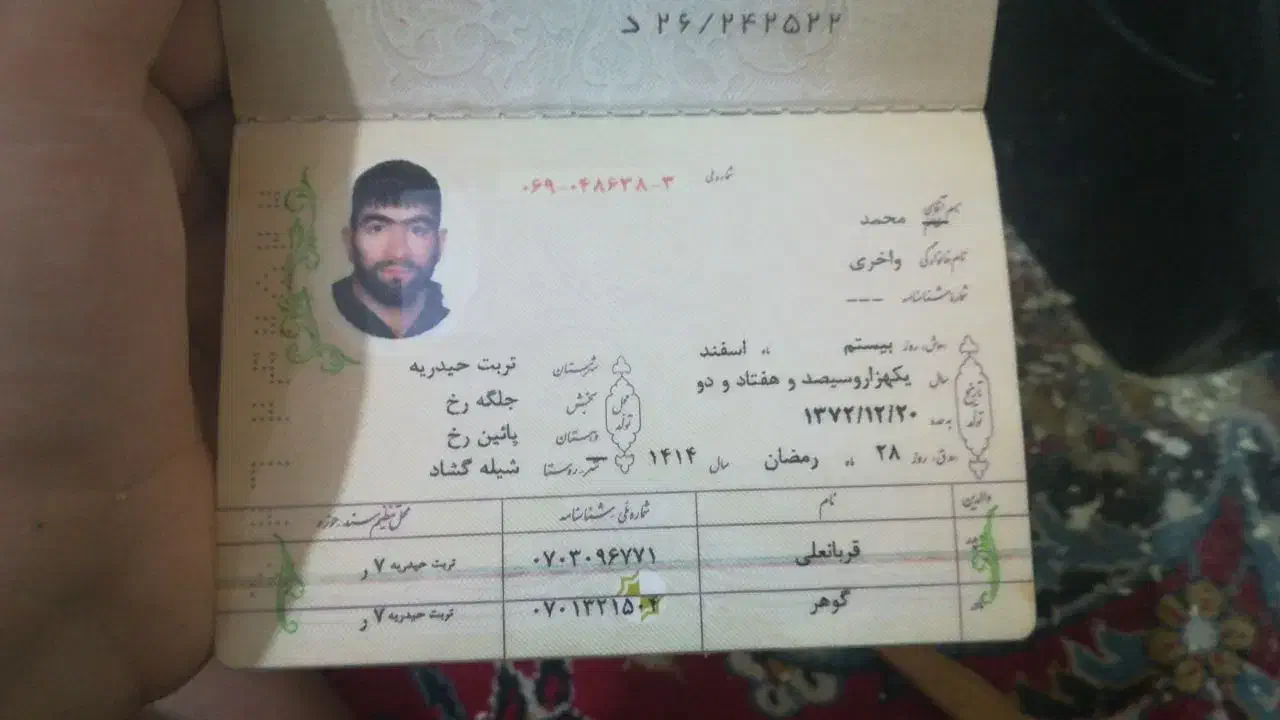 د ۲۶/۲۴۲۵۲۲
شماره ملی ۰۶۹-۰۴۸۶۳۸-۳
نام آقای محمد
نام خانوادگی واخری
شماره شناسنامه ---
تاریخ تولد
شمسی، روز بیستم ماه اسفند
سال یکهزاروسیصد و هفتاد و دو
به عدد ۱۳۷۲/۱۲/۲۰
قمری، روز ۲۸ ماه رمضان سال ۱۴۱۴
محل تولد
شهرستان تربت حیدریه
بخش جلگه رخ
دهستان پائین رخ
شهر، روستا شیله گشاد
والدین نام شماره ملی، شناسنامه محل تنظیم سند، حوزه
پدر قربانعلی ۰۷۰۳۰۹۶۷۷۱ تربت حیدریه ۷ ر
مادر گوهر ۰۷۰۱۳۲۱۵۰۴ تربت حیدریه ۷ ر